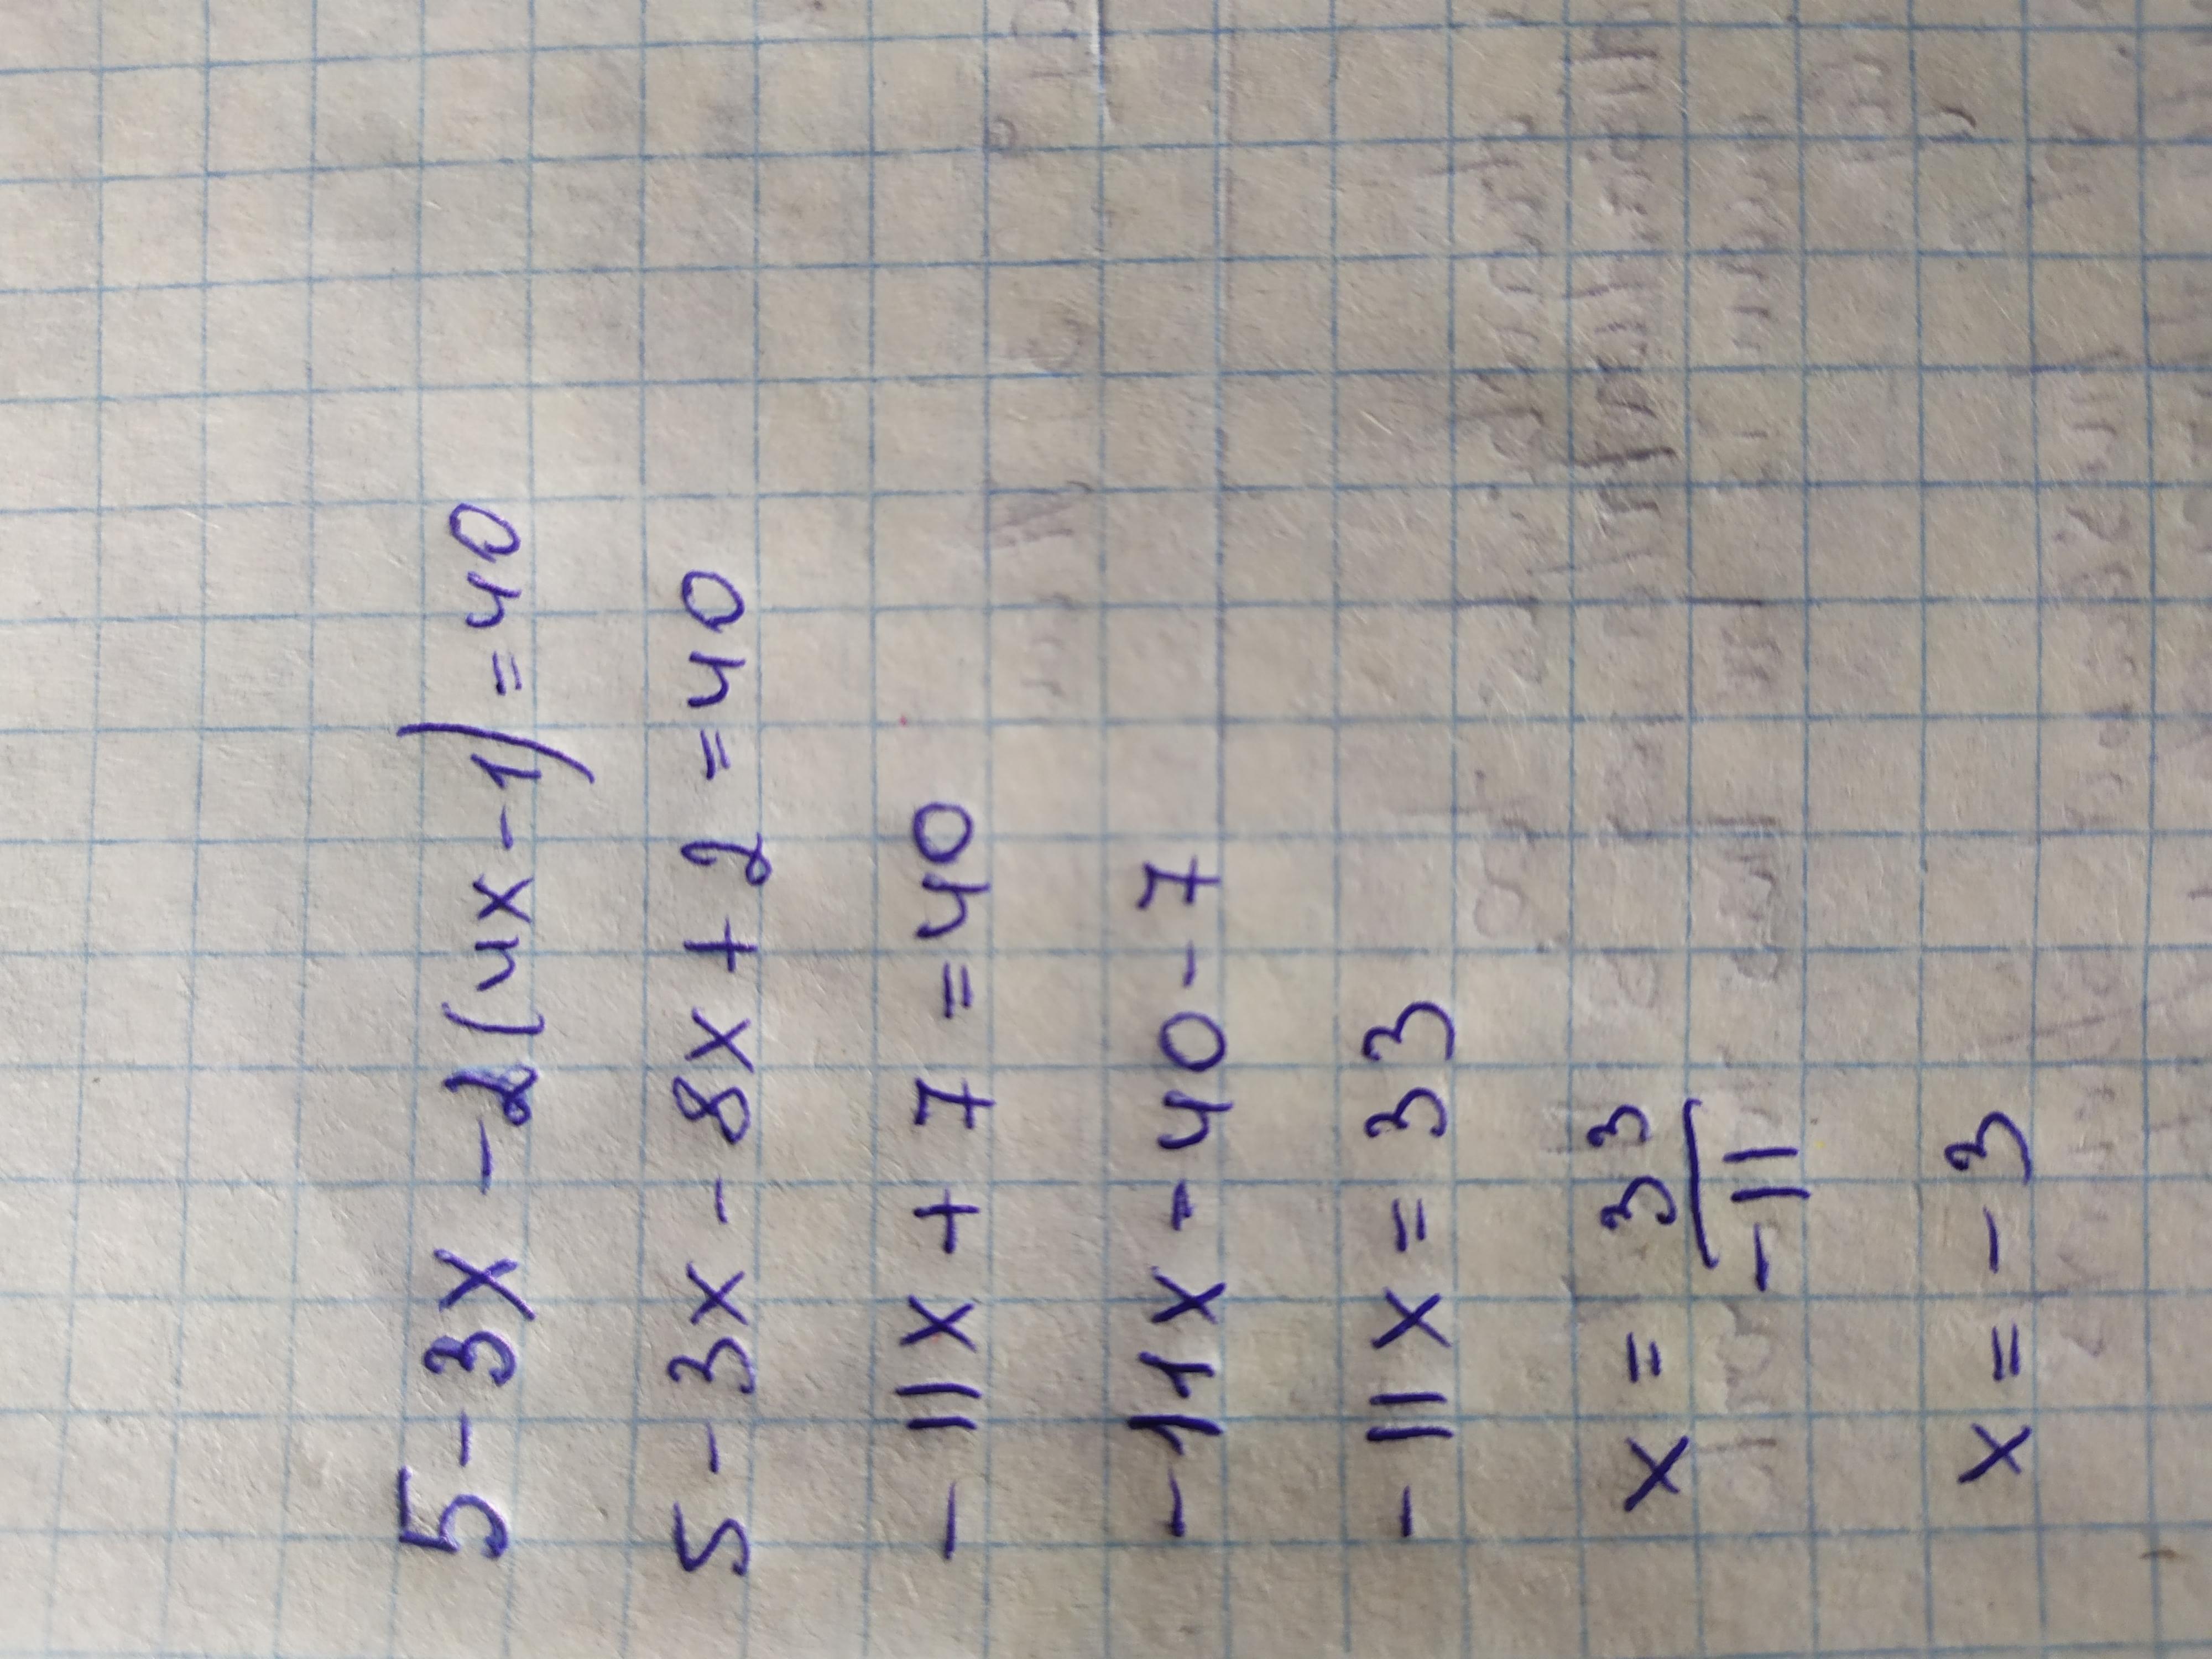 5-3x-2(4x-1)=40
5-3x-8x+2=40
-11x+7=40
-11x-40-7
-11x=33
x=33/-11
x=-3